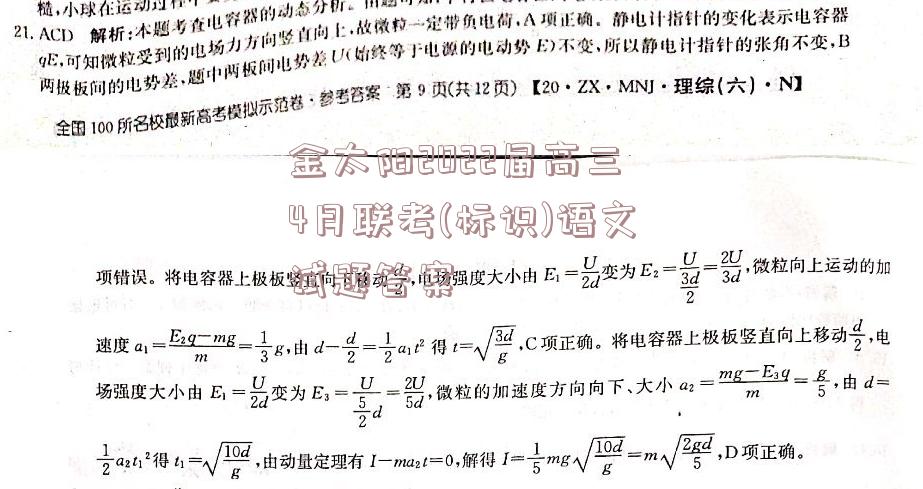 糙，小球在运动过程中
21. ACD 解析：本题考查电容器的动态分析。由题可知
qE，可知微粒受到的电场力方向竖直向上，故微粒一定带负电荷，A项正确。静电计指针的变化表示电容器
两极板间的电势差，题中两板间电势差U(始终等于电源的电动势E)不变，所以静电计指针的张角不变，B
全国100所名校最新高考模拟示范卷·参考答案 第9页(共12页) 【20·ZX·MNJ·理综(六)·N】
金太阳2022届高三
4月联考(标识)语文
试题答案
项错误。将电容器上极板竖直向下移动d/2，电场强度大小由E₁=U/2d变为E₂=U/(3d/2)=2U/3d，微粒向上运动的加
速度a₁=(E₂q-mg)/m=1/3g，由d-d/2=1/2a₁t²得t=√(3d/g)，C项正确。将电容器上极板竖直向上移动d/2，电
场强度大小由E₁=U/2d变为E₃=U/(5/2d)=2U/5d，微粒的加速度方向向下、大小a₂=(mg-E₃q)/m=g/5，由d=
1/2a₂t₁²得t₁=√(10d/g)，由动量定理有I-ma₂t=0，解得I=1/5mg√(10d/g)=m√(2gd/5)，D项正确。